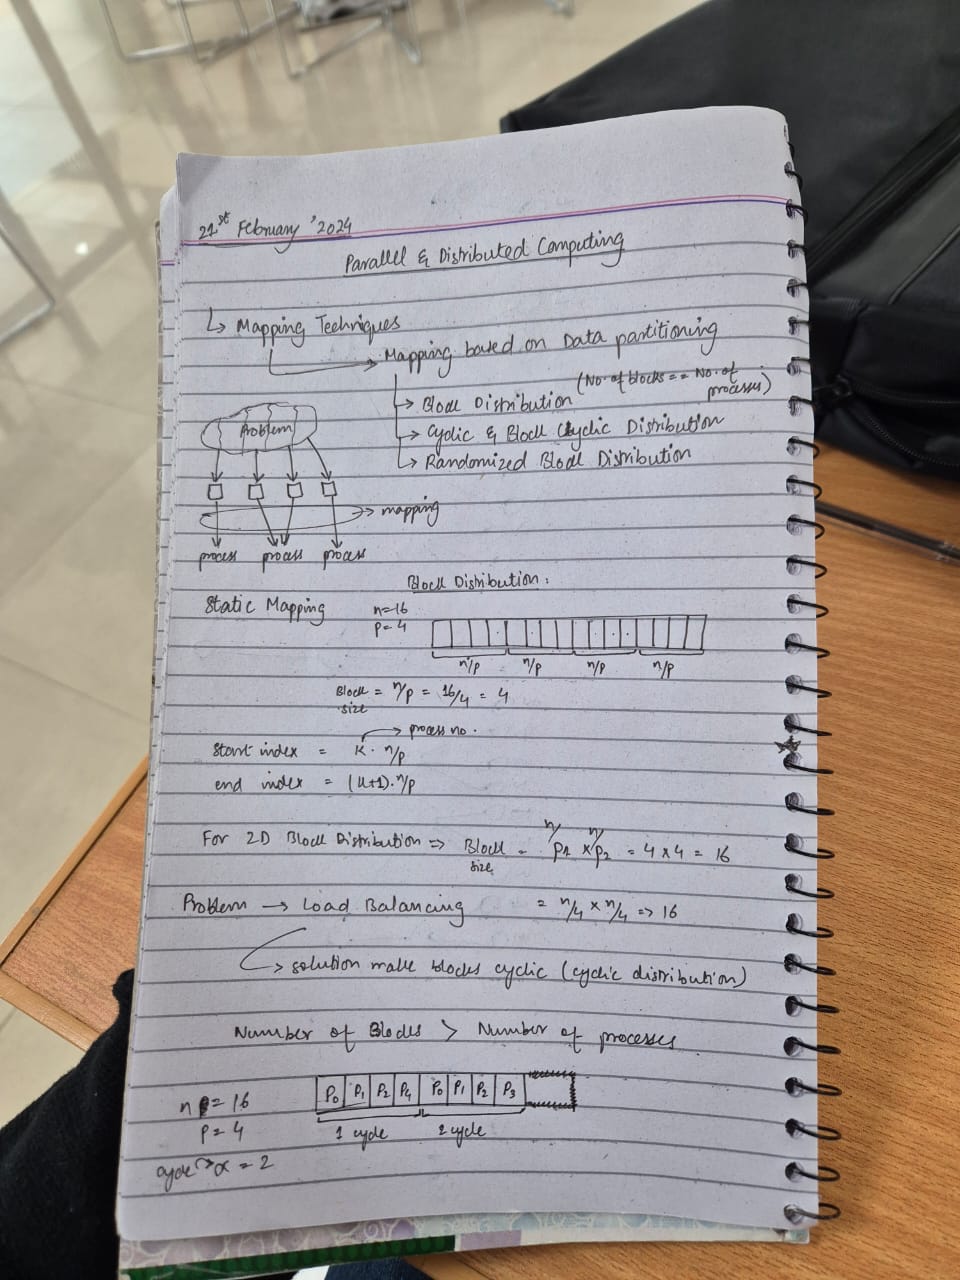 21st February '2024
Parallel & Distributed Computing
↳ Mapping Techniques
→ Mapping based on Data partitioning
→ Block Distribution (No. of blocks == No. of processes)
→ Cyclic & Block Cyclic Distribution
→ Randomized Block Distribution
Problem
→ mapping
process process process
Block Distribution :
Static Mapping
n=16
p=4
n/p n/p n/p n/p
Block size = n/p = 16/4 = 4
→ process no.
Start index = K . n/p
end index = (k+1) . n/p
For 2D Block Distribution ⇒ Block size = n/p1 × n/p2 = 4 × 4 = 16
Problem → Load Balancing = n/4 × n/4 => 16
→ solution make blocks cyclic (cyclic distribution)
Number of Blocks > Number of processes
n = 16
P0 P1 P2 P4 P0 P1 P2 P3
p = 4
1 cycle 2 cycle
cycle → α = 2